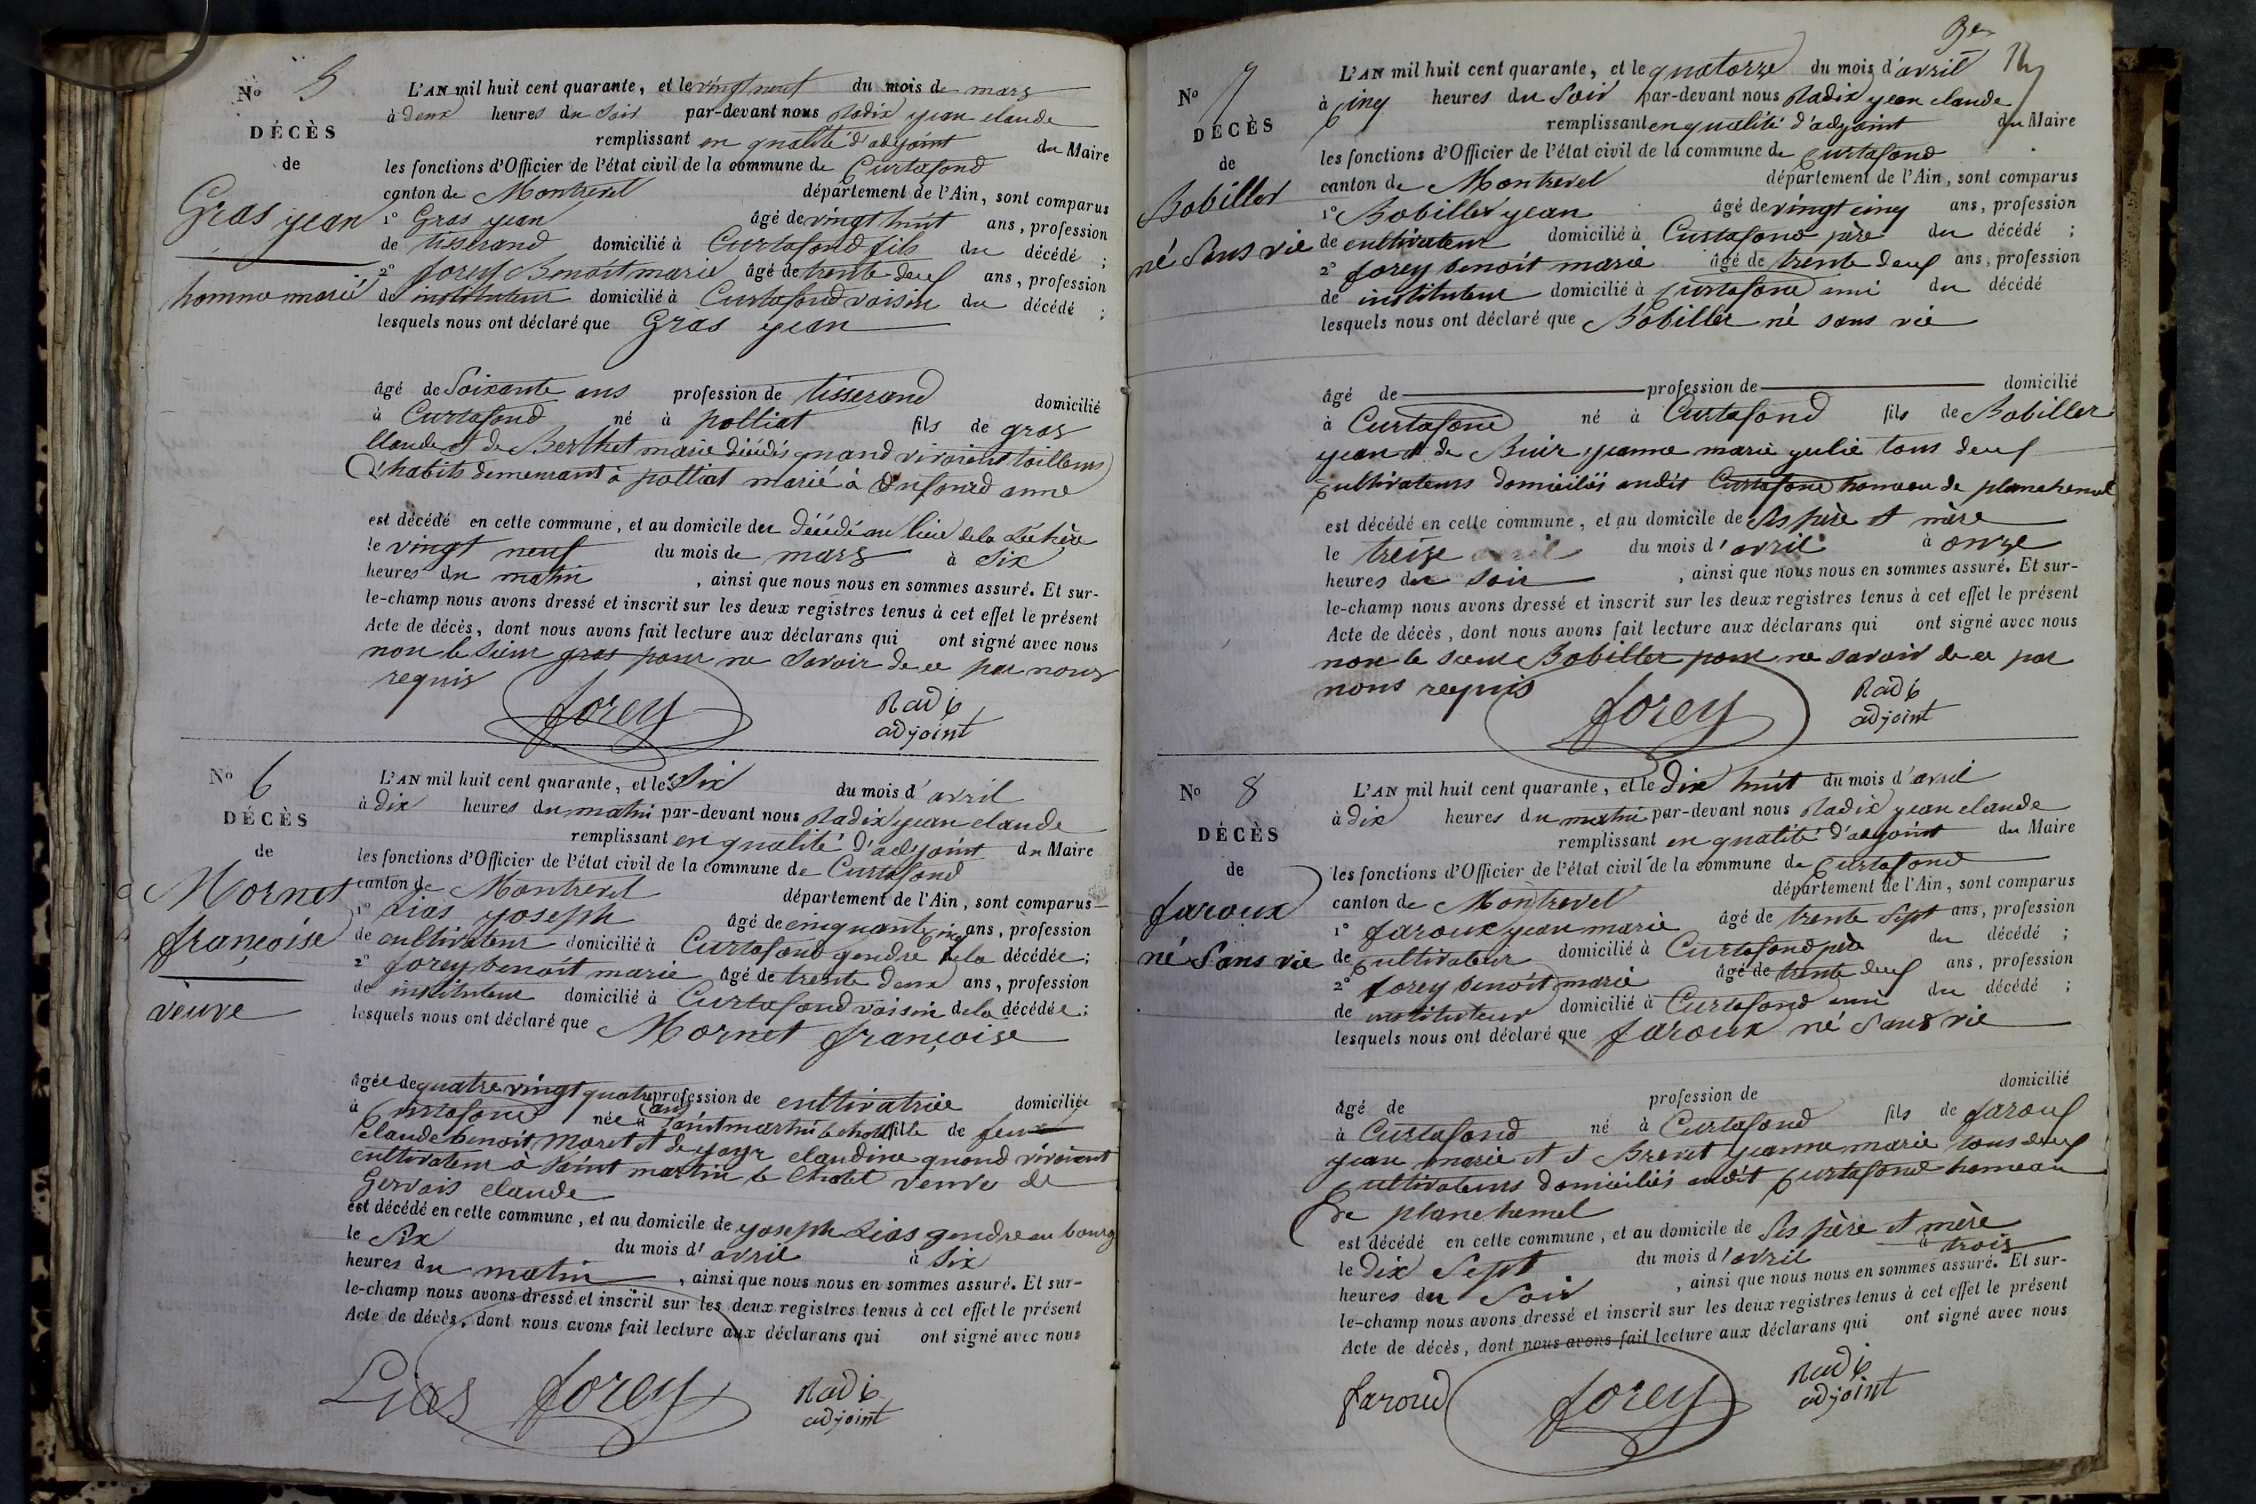 Nº 5
DÉCÈS
de
Gras jean
homme marié
L'AN mil huit cent quarante, et le vingt neuf du mois de mars
à deux heures du soir par-devant nous Radix jean claude
remplissant en qualité d'adjoint du Maire
les fonctions d'Officier de l'état civil de la commune de Curtafond
canton de Montrevel département de l'Ain, sont comparus
1º Gras jean âgé de vingt huit ans, profession
de tisserand domicilié à Curtafond fils du décédé ;
2º forey Benoit marie âgé de trente deux ans, profession
de instituteur domicilié à Curtafond voisin du décédé ;
lesquels nous ont déclaré que Gras jean
âgé de Soixante ans profession de tisserand domicilié
à Curtafond né à polliat fils de gras
Claude et de Berthet marie décédés quand vivoient tailleurs
d'habits demeurant à polliat marié à Dufourd anne
est décédé en cette commune, et au domicile du décédé au lieu de la
le vingt neuf du mois de mars à Six
heures du matin , ainsi que nous nous en sommes assuré. Et sur-
le-champ nous avons dressé et inscrit sur les deux registres tenus à cet effet le présent
Acte de décès, dont nous avons fait lecture aux déclarans qui ont signé avec nous
non le Sieur gras pour ne Savoir de ce par nous
requis
forey Radix
adjoint
Nº 6
DÉCÈS
de
Mornet
françoise
veuve
L'AN mil huit cent quarante, et le Six du mois d'avril
à dix heures du matin par-devant nous Radix jean claude
remplissant en qualité d'adjoint du Maire
les fonctions d'Officier de l'état civil de la commune de Curtafond
canton de Montrevel département de l'Ain, sont comparus
1º Lias joseph âgé de cinquante cinq ans, profession
de cultivateur domicilié à Curtafond gendre de la décédée ;
2º forey benoit marie âgé de trente deux ans, profession
de instituteur domicilié à Curtafond voisin de la décédée ;
lesquels nous ont déclaré que Mornet françoise
âgée de quatre vingt quatre ans profession de cultivatrice domiciliée
à Curtafond née à Saint martin le chatel fille de feu
claude benoit Moret et de joyr claudine quand vivoient
cultivateur à Saint martin le Chatel veuve de
Gervais claude
est décédé en cette commune, et au domicile de joseph Lias gendre au bourg
le Six du mois d'avril à Six
heures du matin , ainsi que nous nous en sommes assuré. Et sur-
le-champ nous avons dressé et inscrit sur les deux registres tenus à cet effet le présent
Acte de décès, dont nous avons fait lecture aux déclarans qui ont signé avec nous
Lias forey Radix
adjoint
Nº 7
DÉCÈS
de
Bobiller
né Sans vie
L'AN mil huit cent quarante, et le quatorze du mois d'avril
à cinq heures du Soir par-devant nous Radix jean claude
remplissant en qualité d'adjoint du Maire
les fonctions d'Officier de l'état civil de la commune de Curtafond
canton de Montrevel département de l'Ain, sont comparus
1º Bobiller jean âgé de vingt cinq ans, profession
de cultivateur domicilié à Curtafond père du décédé ;
2º forey benoit marie âgé de trente deux ans, profession
de instituteur domicilié à Curtafond ami du décédé
lesquels nous ont déclaré que Bobiller né sans vie
âgé de profession de domicilié
à Curtafond né à Curtafond fils de Bobiller
jean et de Buir jeanne marie julie tous deux
Cultivateurs domiciliés audit Curtafond hameau de planchemel
est décédé en cette commune, et au domicile de Ses père et mère
le treize avril du mois d'avril à onze
heures du soir , ainsi que nous nous en sommes assuré. Et sur-
le-champ nous avons dressé et inscrit sur les deux registres tenus à cet effet le présent
Acte de décès, dont nous avons fait lecture aux déclarans qui ont signé avec nous
non le sieur Bobiller pour ne savoir de ce par
nous requis
forey Radix
adjoint
Nº 8
DÉCÈS
de
faroux
né Sans vie
L'AN mil huit cent quarante, et le dix huit du mois d'avril
à dix heures du matin par-devant nous Radix jean claude
remplissant en qualité d'adjoint du Maire
les fonctions d'Officier de l'état civil de la commune de Curtafond
canton de Montrevel département de l'Ain, sont comparus
1º faroux jean marie âgé de trente Sept ans, profession
de Cultivateur domicilié à Curtafond père du décédé ;
2º forey benoit marie âgé de trente deux ans, profession
de instituteur domicilié à Curtafond ami du décédé ;
lesquels nous ont déclaré que faroux né Sans vie
âgé de profession de domicilié
à Curtafond né à Curtafond fils de faroux
jean marie et d Brevet jeanne marie tous deux
Cultivateurs domiciliés audit Curtafond hameau
de planchemel
est décédé en cette commune, et au domicile de Ses père et mère
le dix Sept du mois d'avril à trois
heures du Soir , ainsi que nous nous en sommes assuré. Et sur-
le-champ nous avons dressé et inscrit sur les deux registres tenus à cet effet le présent
Acte de décès, dont nous avons fait lecture aux déclarans qui ont signé avec nous
faroud forey Radix
adjoint